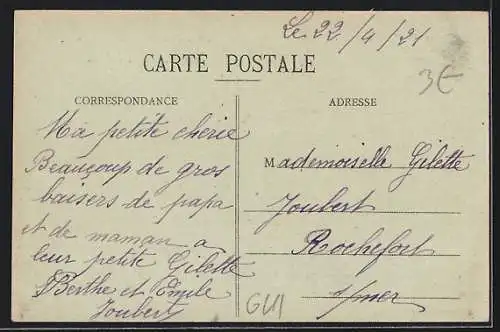 Le 22/4/21
CARTE POSTALE
3€
CORRESPONDANCE
Ma petite cherie
Beaucoup de gros
baisers de papa
et de maman a
leur petite Gilette
Berthe et Emile
Joubert
ADRESSE
Mademoiselle Gilette
Joubert
Rochefort
s/mer